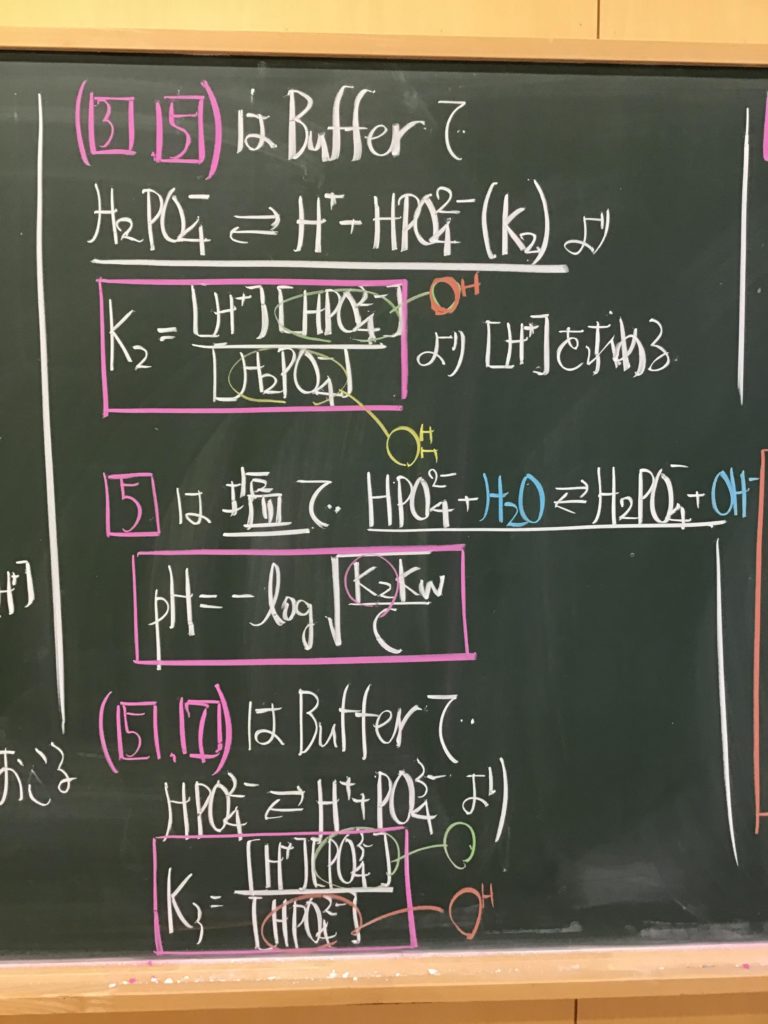 (3, 5) は Bufferで
H₂PO₄⁻ ⇄ H⁺ + HPO₄²⁻ (K₂) より
K₂ = [H⁺][HPO₄²⁻] / [H₂PO₄⁻] より [H⁺]を求める
OH
OHH
5 は塩で HPO₄²⁻ + H₂O ⇄ H₂PO₄⁻ + OH⁻
pH = -log √(K₂Kw / C)
(5, 7) は Bufferで
HPO₄²⁻ ⇄ H⁺ + PO₄³⁻ より
K₃ = [H⁺][PO₄³⁻] / [HPO₄²⁻]
O
OH
H⁺]
おこる